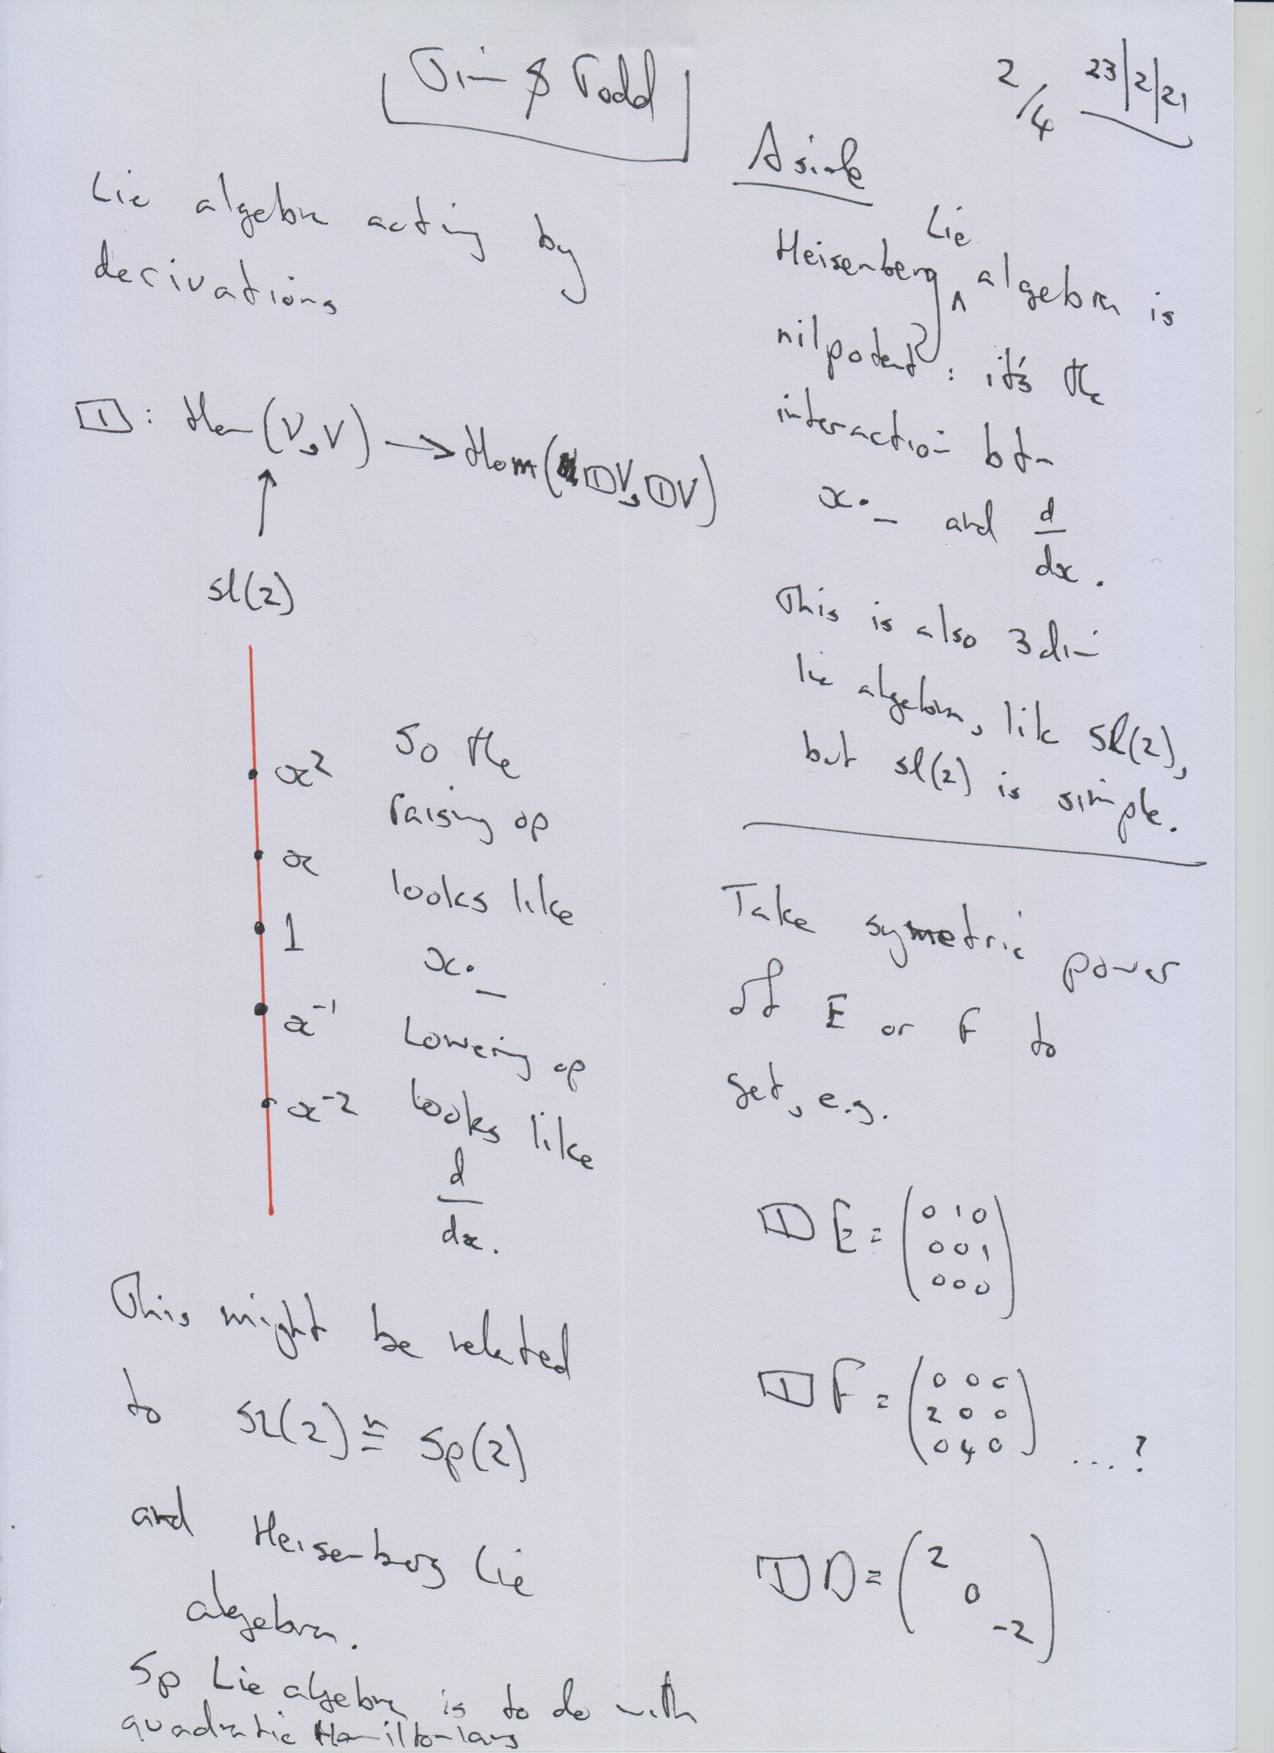 Tim & Todd
2/4 23/2/21
Lie algebra acting by
derivations
□: Hom(V,V) → Hom(□V,□V)
↑
sl(2)
x²
x
1
x⁻¹
x⁻²
So the
raising op
looks like
x·_
Lowering op
looks like
d/dx.
This might be related
to sl(2) ≅ sp(2)
and Heisenberg Lie
algebra.
Sp Lie algebra is to do with
quadratic Hamiltonians
Aside
Heisenberg Lie algebra is
nilpotent: it's the
interaction btn
x·_ and d/dx.
This is also 3dim
lie algebra, like sl(2),
but sl(2) is simple.
Take symetric power
of E or F to
get, e.g.
□ E = (0 1 0
0 0 1
0 0 0)
□ F = (0 0 0
2 0 0
0 4 0) ...?
□ D = (2
0
-2)